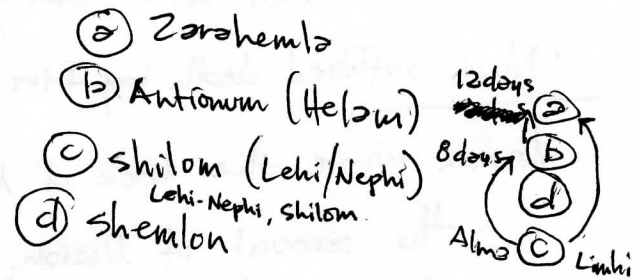 a Zarahemla
b Antionum (Helam)
c Shilom (Lehi/Nephi)
Lehi-Nephi, Shilom.
d Shemlon
12days
a
8days b
d
Alma c Limhi